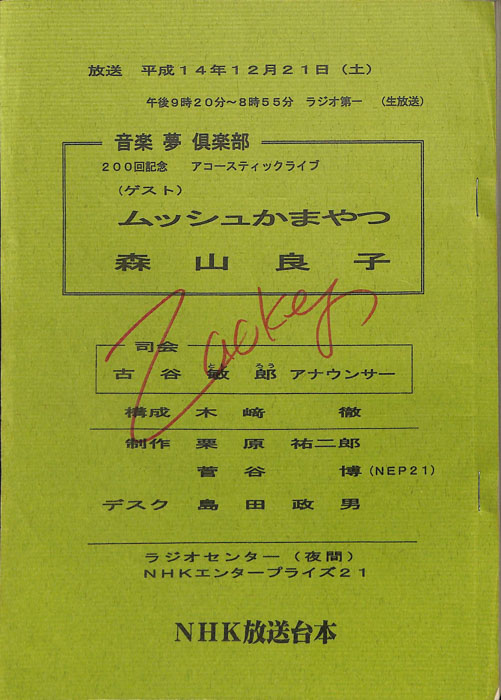 放送 平成14年12月21日（土）
午後9時20分〜8時55分 ラジオ第一 （生放送）
音楽 夢 倶楽部
200回記念 アコースティックライブ
（ゲスト）
ムッシュかまやつ
森山良子
Zackey
司会
古谷敏郎 アナウンサー
とし ろう
構成 木﨑 徹
制作 栗原 祐二郎
菅谷 博(NEP21)
デスク 島田政男
ラジオセンター（夜間）
NHKエンタープライズ21
NHK放送台本